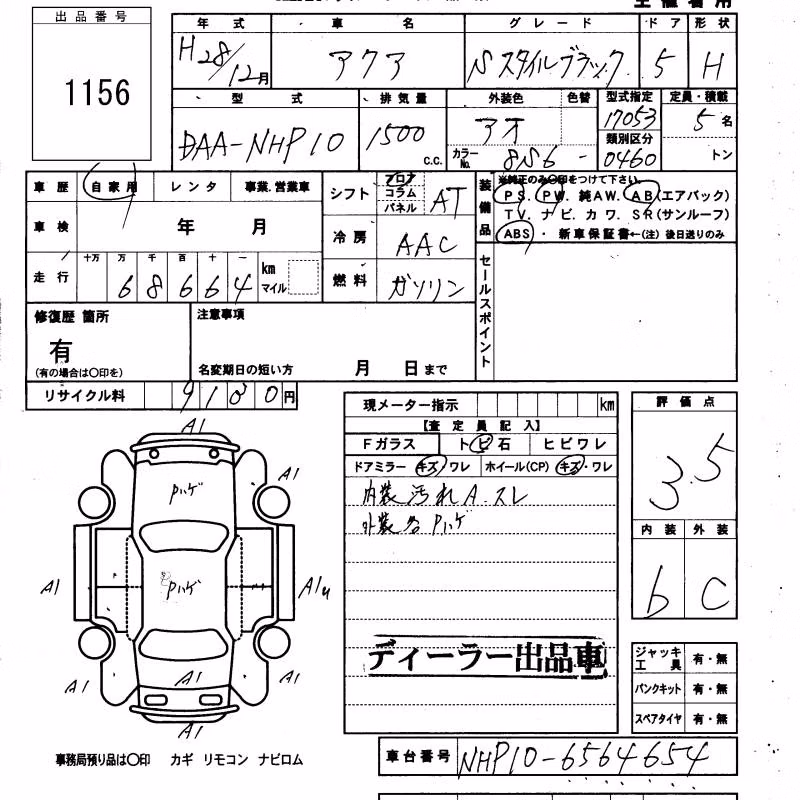 出品番号
1156
年式 車名 グレード ドア 形状
H28/12月 アクア Sスタイルブラック 5 H
型式 排気量 外装色 色替 型式指定 定員・積載
DAA-NHP10 1500c.c. アオ 17053 5名
カラーNo. 8S6 - 類別区分 0460 トン
車歴 自家用 レンタ 事業.営業車
シフト フロア コラム パネル AT
装備品 ※純正のみ〇印をつけて下さい。
PS. PW. 純AW. AB(エアバック)
TV. ナビ. カワ. SR(サンルーフ)
ABS ・ 新車保証書←(注) 後日送りのみ
車検 年 月
冷房 AAC
走行 十万 万 千 百 十 一 km マイル
68664
燃料 ガソリン
セールスポイント
修復歴 箇所
有
(有の場合は〇印を)
注意事項
名変期日の短い方 月 日まで
リサイクル料 9130円
現メーター指示 km
【査定員記入】
Fガラス トビ石 ヒビワレ
ドアミラー キズ・ワレ ホイール(CP) キズ・ワレ
内装汚れA.スレ
外装各Pハゲ
ディーラー出品車
評価点
3.5
内装 外装
b C
ジャッキ工具 有・無
パンクキット 有・無
スペアタイヤ 有・無
A1
Pハゲ
A1
A1
Pハゲ
A1u
A1
A1
A1
A1
A1
事務局預り品は〇印 カギ リモコン ナビロム
車台番号 NHP10-6564654